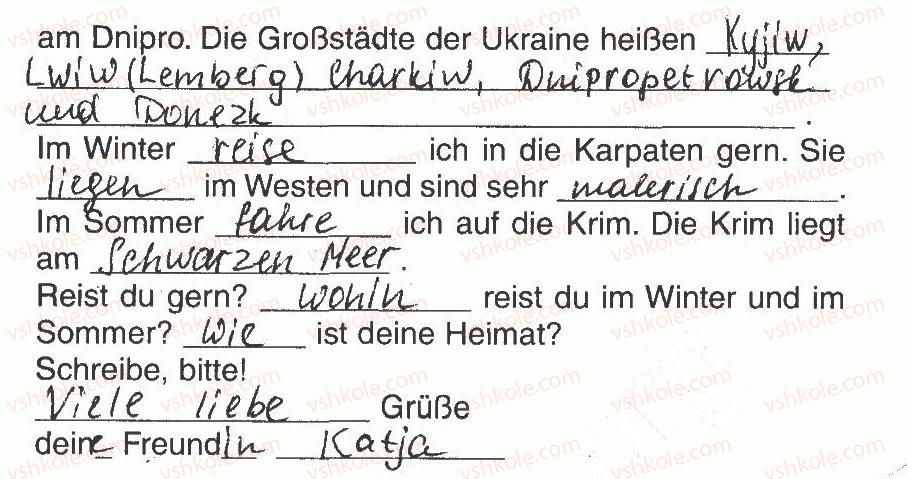 am Dnipro. Die Großstädte der Ukraine heißen Kyjiw,
Lwiw (Lemberg) Charkiw, Dnipropetrowsk
und Donezk.
Im Winter reise ich in die Karpaten gern. Sie
liegen im Westen und sind sehr malerisch.
Im Sommer fahre ich auf die Krim. Die Krim liegt
am Schwarzen Meer.
Reist du gern? Wohin reist du im Winter und im
Sommer? Wie ist deine Heimat?
Schreibe, bitte!
Viele liebe Grüße
deine Freundin Katja